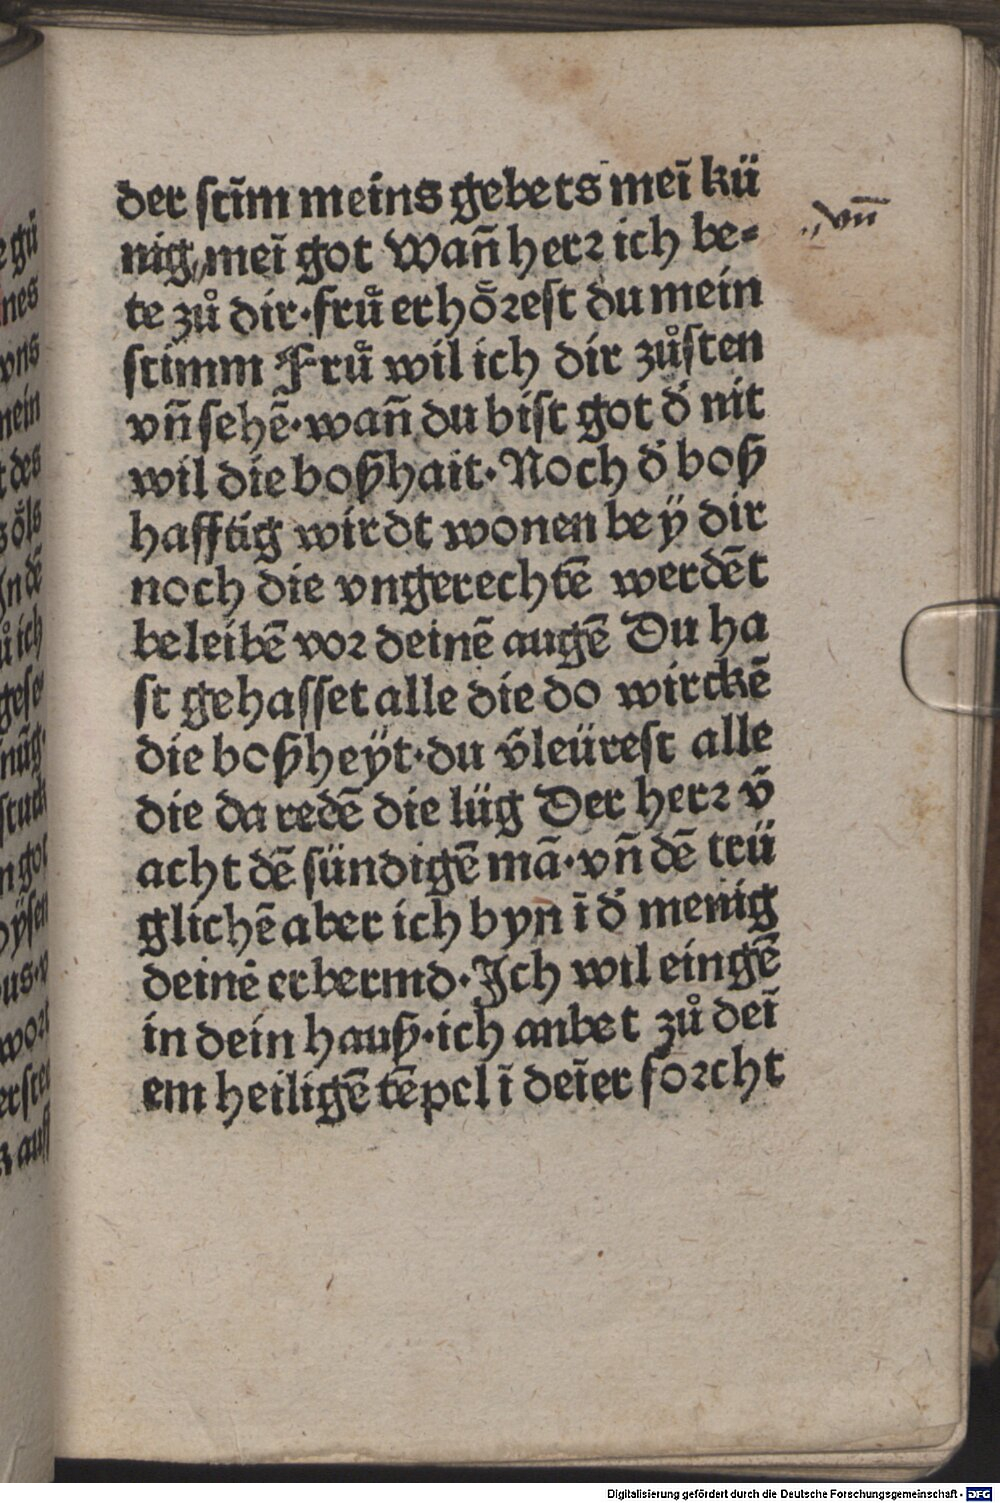 der stīm meins gebets meī kü
nig,,meī got Wañ herꝛ ich be⸗
te zů dir·frů erhoͤꝛest du mein
stimm Frů wil ich dir zůsten
vñ sehē·wañ du bist got d̓ nit
wil die boßhait·Noch d̓ boß
hafftig wirdt wonen beÿ dir
noch die vngerechtē werdēt
beleibē voꝛ deinē augē Du ha
st gehasset alle die do wirckē
die boßheÿt·du v̄leürest alle
die da redē die lüg Der herꝛ v̄
acht dē sündigē mā·vñ dē trü
glichē aber ich byn ī d̓ menig
deinē erbermd·Ich wil eingē
in dein hauß·ich anbet zů deī
em heiligē tēpel ī deīer foꝛcht
.,,vñ
e gů
nes
vns
mein
t des
s oͤls
In dē
ů ich
gese⸗
nüg·
stuck
n got
us·v
woꝛt
erste
auß
Digitalisierung gefördert durch die Deutsche Forschungsgemeinschaft - DFG